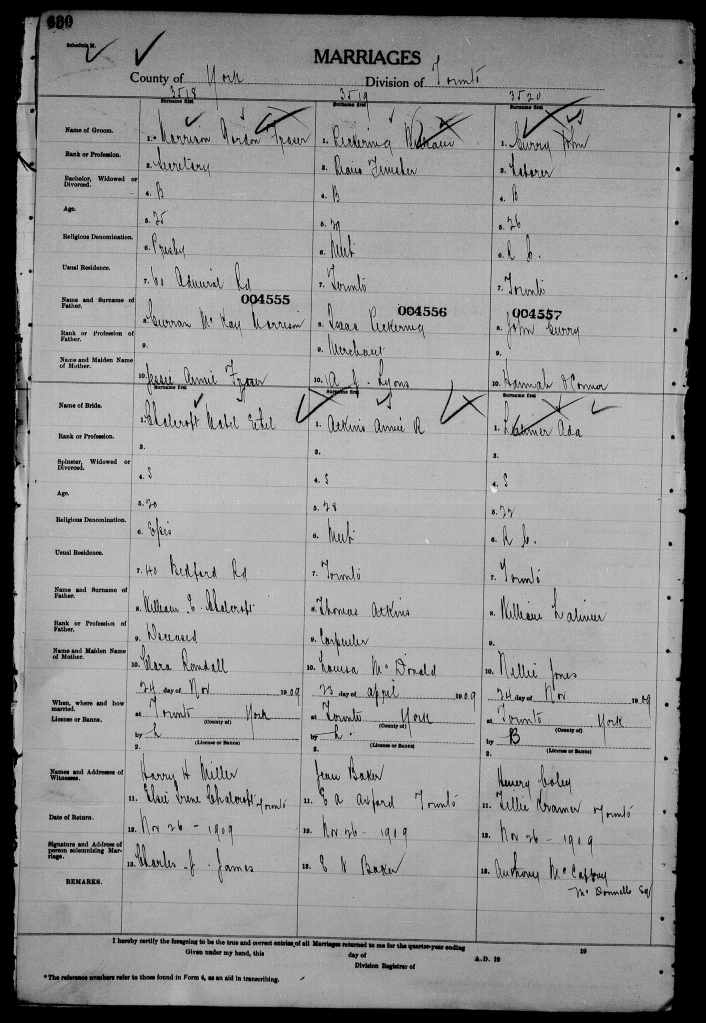 680
Schedule M.
MARRIAGES
County of York Division of Toronto
3518 3519 3520
Surname first Surname first Surname first
Name of Groom. 1.* Morrison Gordon Fraser 1. Pickering William 1. Gurry John
Rank or Profession. 2. Secretary 2. Piano Finisher 2. Laborer
Bachelor, Widowed or Divorced. 4. B 4. B 4. B
Age. 5. 25 5. 29 5. 26
Religious Denomination. 6. Presby 6. Meth 6. R C.
Usual Residence. 7. 60 Admiral Rd 7. Toronto 7. Toronto
004555 004556 004557
Name and Surname of Father. 8. Curran McKay Morrison 8. Isaac Pickering 8. John Gurry
Rank or Profession of Father. 9. 9. Merchant 9.
Name and Maiden Name of Mother. 10. Jessie Annie Fraser 10. A. J. Lyons 10. Hannah O'Connor
Surname first Surname first Surname first
Name of Bride. 1. Chalcroft Mabel Ethel 1. Atkins Annie R 1. Latimer Ada
Rank or Profession. 2. 2. 2.
Spinster, Widowed or Divorced. 4. S 4. S 4. S
Age. 5. 20 5. 28 5. 22
Religious Denomination. 6. Epis 6. Meth 6. R C.
Usual Residence. 7. 40 Bedford Rd 7. Toronto 7. Toronto
Name and Surname of Father. 8. William E. Chalcroft 8. Thomas Atkins 8. William Latimer
Rank or Profession of Father. 9. Deceased 9. Carpenter 9.
Name and Maiden Name of Mother. 10. Clara Rondall 10. Louisa McDonald 10. Nellie Jones
24 day of Nov 1909 23 day of april 1909 24 day of Nov 1909
When, where and how married. at Toronto York at Toronto York at Toronto York
(County of) (County of) (County of)
License or Banns. by L by L. by B
(License or Banns) (License or Banns) (License or Banns)
Names and Addresses of Witnesses. Harry H Miller Jean Baker Henery Coley
11. Elsie Irene Chalcroft Toronto 11. E A Axford Toronto 11. Tillie Cramer Toronto
Date of Return. 12. Nov 26 - 1909 12. Nov 26 - 1909 12. Nov 26 - 1909
Signature and Address of person solemnizing Marriage. 13. Charles J. James 13. E N Baker 13. Anthony McCaffrey
McDonnell Sq
REMARKS.
I hereby certify the foregoing to be the true and correct entries of all Marriages returned to me for the quarter-year ending 19
Given under my hand, this day of A.D. 19
Division Registrar of
*The reference numbers refer to those found in Form 4, as an aid in transcribing.